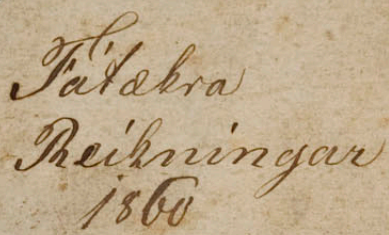 Fátækra
Reikningar
1860